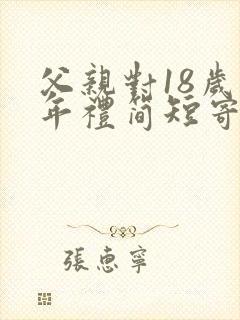 父親對18歲
年禮簡短寄
張惠寧